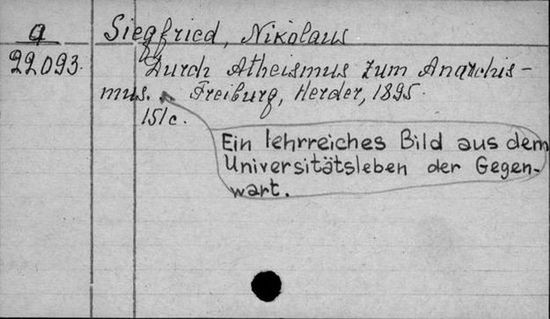 a
Siegfried, Nikolaus
22093.
Durch Atheismus zum Anarchis-
mus. Freiburg, Herder, 1895.
151c.
Ein lehrreiches Bild aus dem
Universitätsleben der Gegen-
wart.